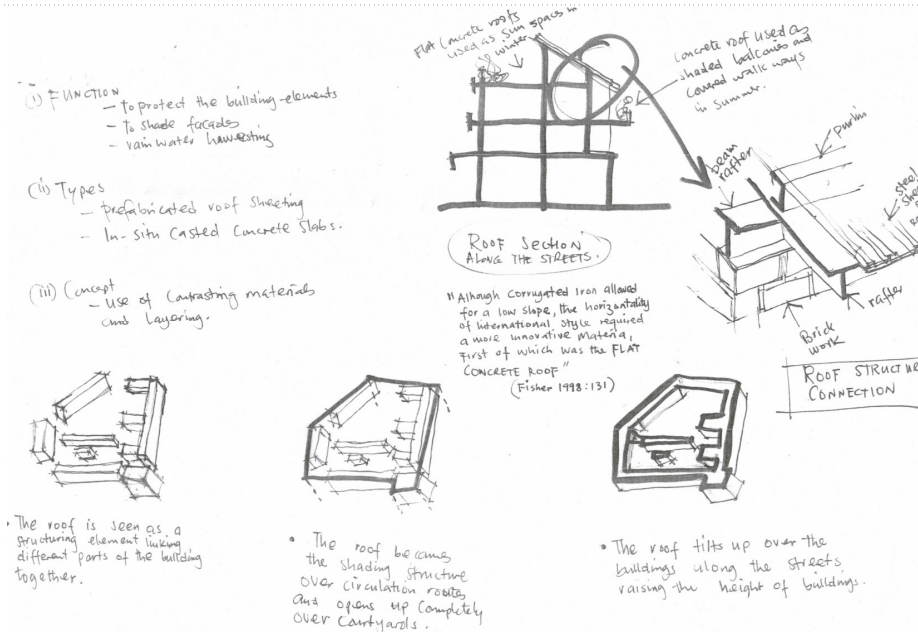 (i) FUNCTION
- to protect the building elements
- to shade facades
- rain water harvesting
(ii) Types
- prefabricated roof sheeting
- In-situ Casted Concrete Slabs.
(iii) Concept
- Use of Contrasting materials
and Layering.
FLAT Concrete roofs
used as sun spaces in
winter
Concrete roof used as
shaded balconies and
covered walk ways
in summer.
ROOF SECTION
ALONG THE STREETS.
"Alhough corrugated Iron allowed
for a low slope, the horizontality
of international style required
a more innovative materia,
First of which was the FLAT
CONCRETE ROOF"
(Fisher 1998:131)
beam
rafter
purlin
steel
rafter
Brick
work
ROOF STRUCTURE
CONNECTION
• The roof is seen as a
structuring element linking
different parts of the building
together.
• The roof becomes
the shading structure
over circulation routes
and opens up completely
over courtyards.
• The roof tilts up over the
buildings along the streets
raising the height of buildings.